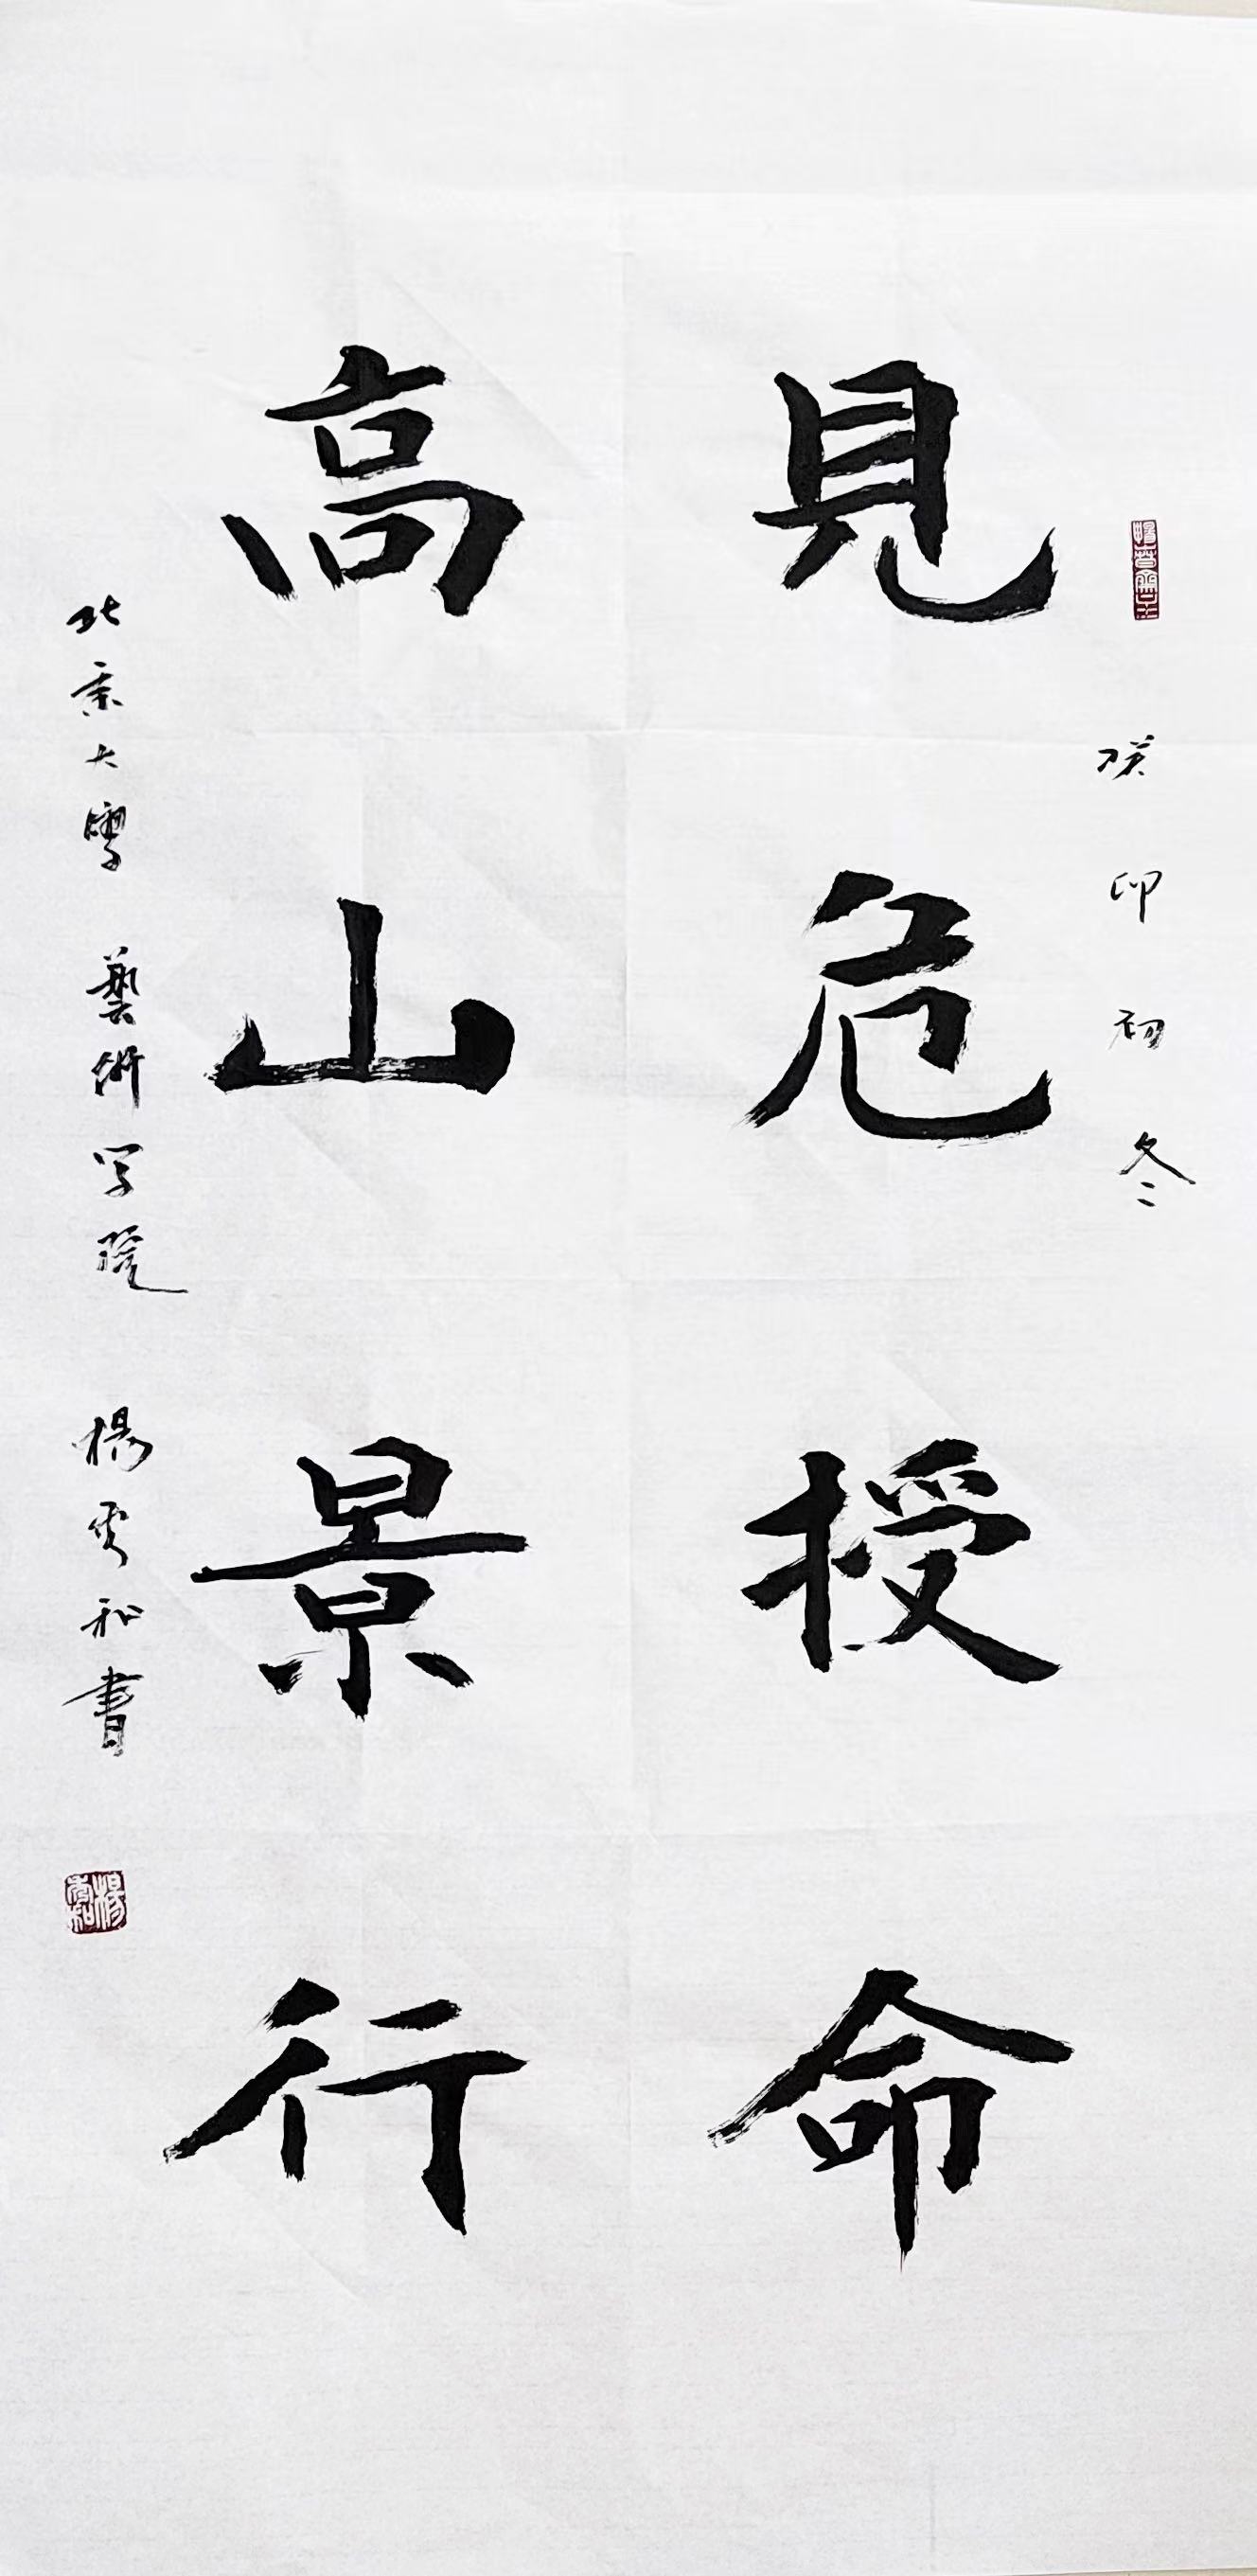 癸卯初冬
見危授命
高山景行
北京大學藝術学院 楊雲和書